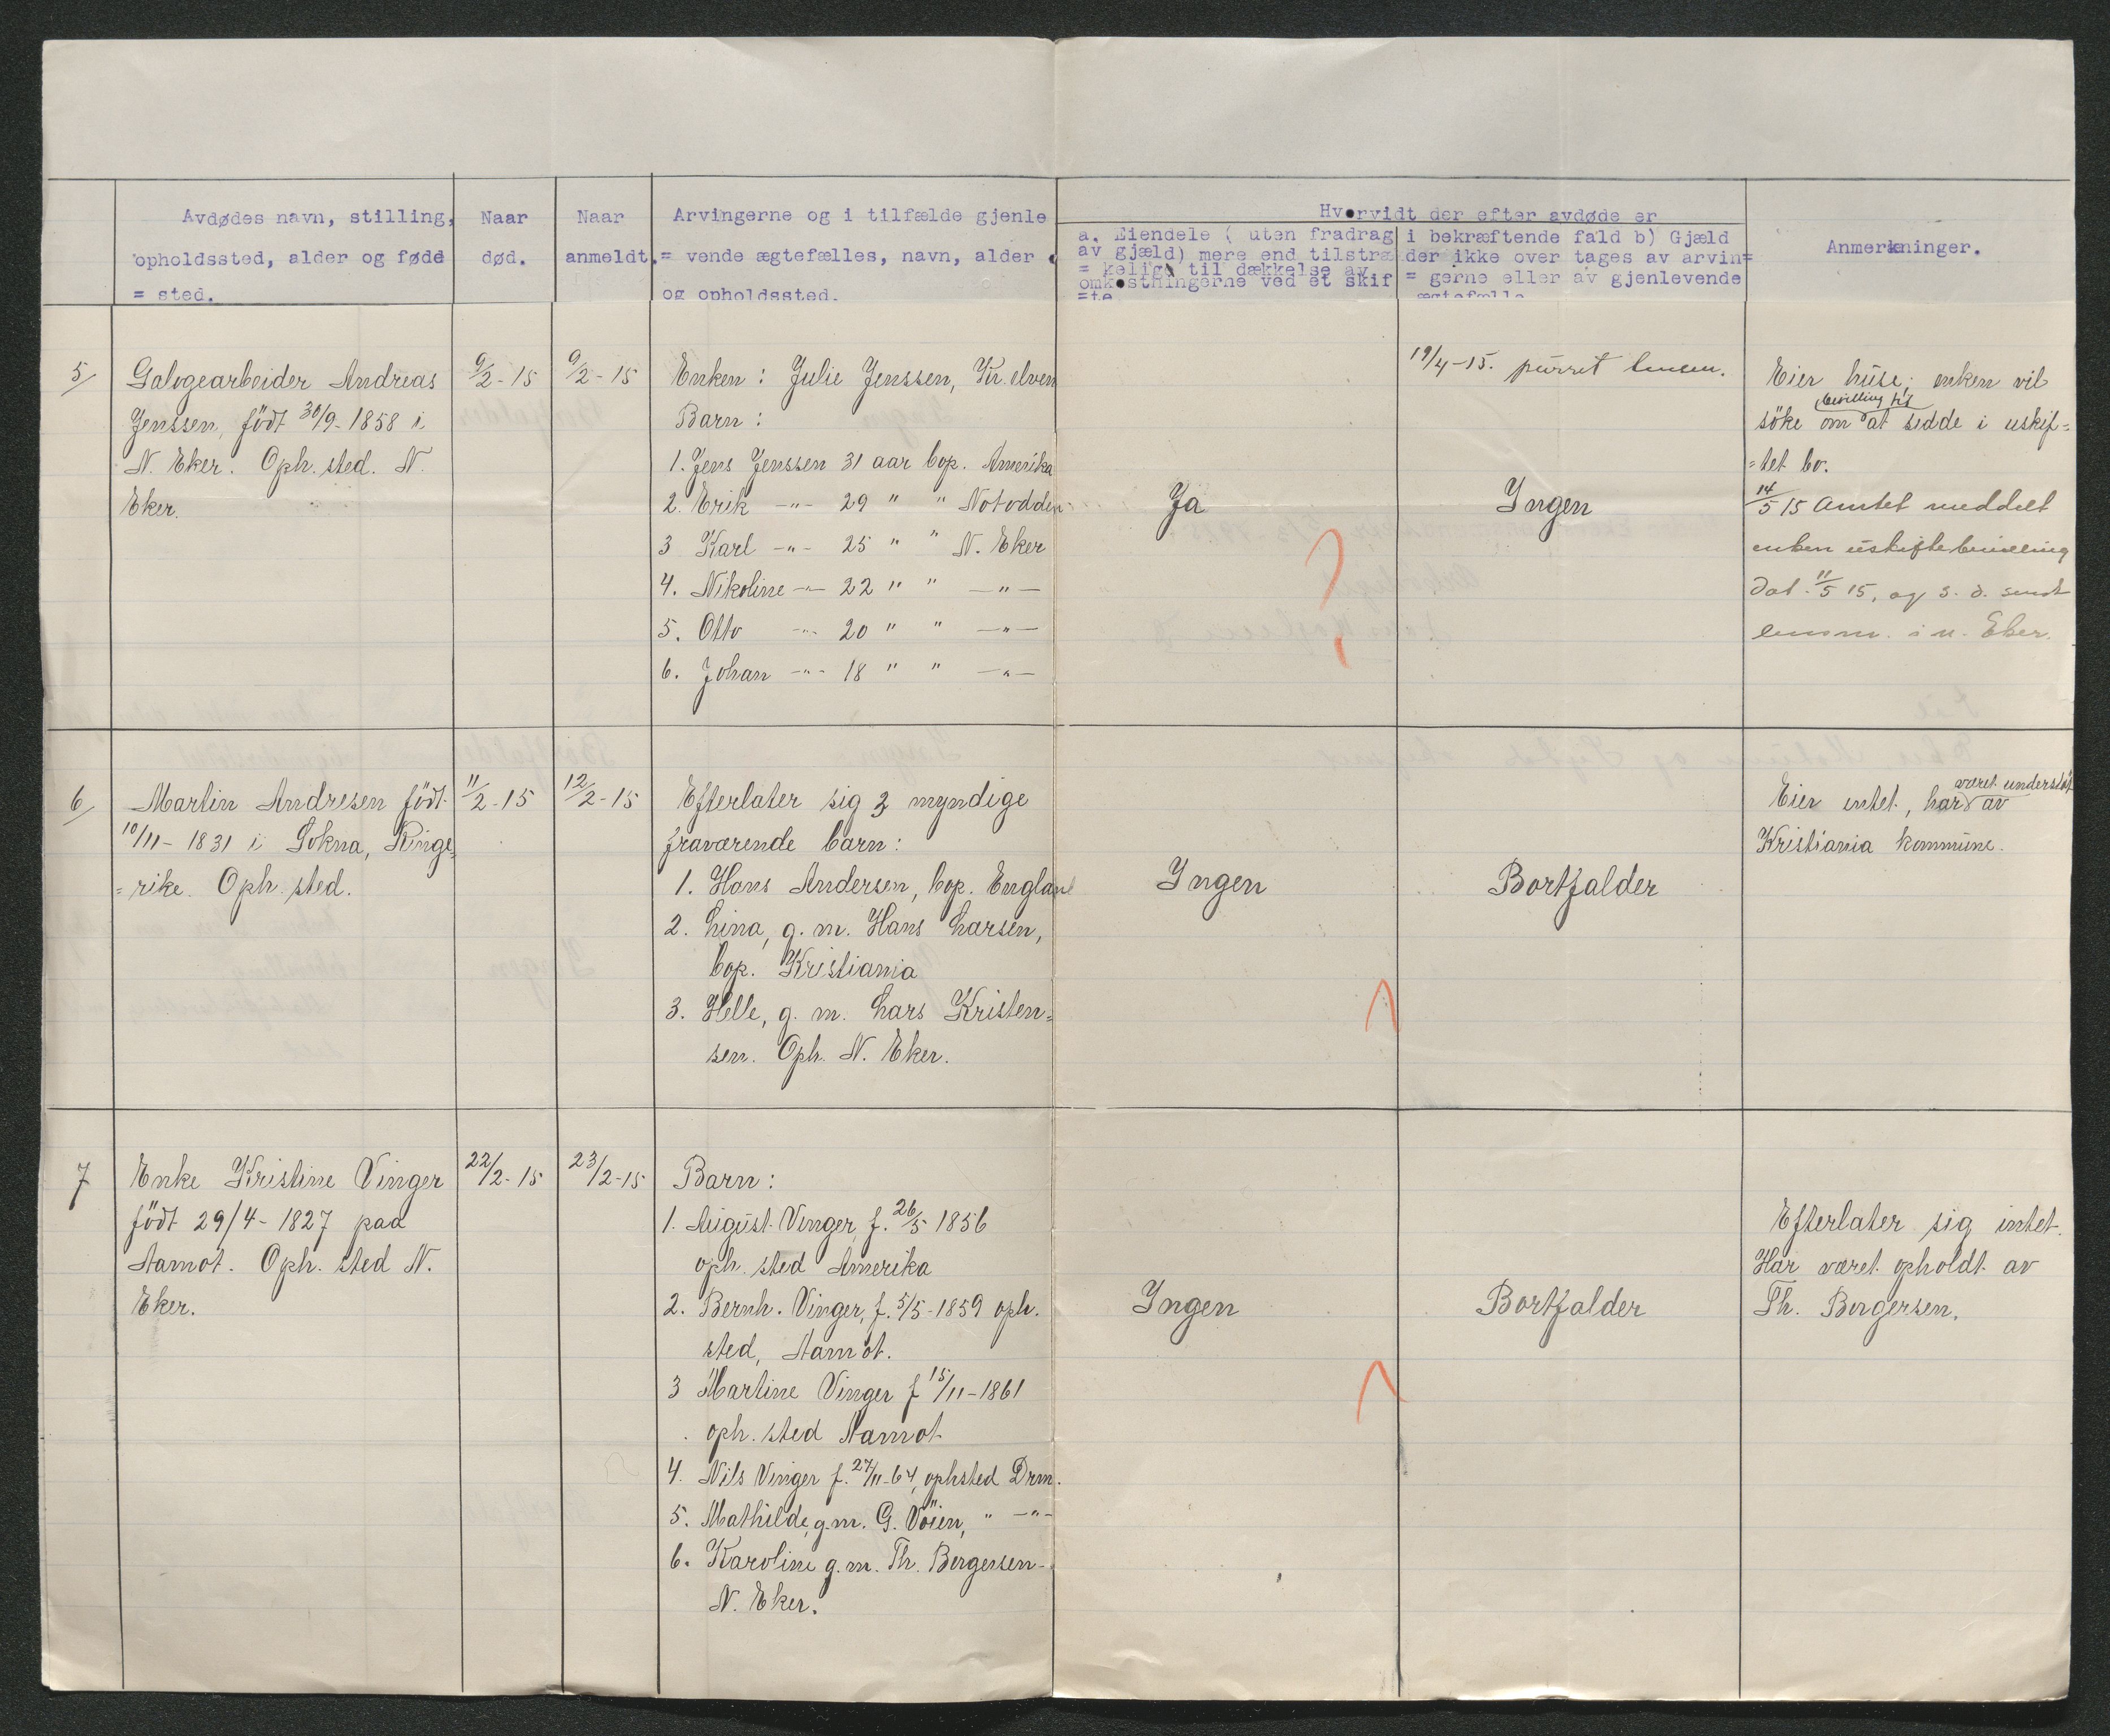 Avdødes navn, stilling,
opholdssted, alder og føde
= sted.
Naar
død.
Naar
anmeldt.
Arvingerne og i tilfælde gjenle
= vende ægtefælles, navn, alder
og opholdssted.
Hvorvidt der efter avdøde er
a. Eiendele ( uten fradrag
av gjæld) mere end tilstræ
= kelig til dækkelse av
omkostningerne ved et skif
=te
i bekræftende fald b) Gjæld
der ikke over tages av arvin=
= gerne eller av gjenlevende
ægtefælle
Anmerkninger.
5/
Galogearbeider Andreas
Jenssen, födt 30/9-1858 i
N. Eker. Oph. sted. N.
Eker.
9/2-15
9/2-15
Enken: Julie Jenssen, Kr. elven
Barn:
1. Jens Jenssen 31 aar bop. Amerika
2. Erik -"- 29 " " Notodden
3 Karl -"- 25 " " N. Eker
4. Nikoline -"- 22 " " -"-
5. Otto -"- 20 " " -"-
6. Johan -"- 18 " " -"-
Ja
?
19/4-15. purret lensm.
Ingen
Eier huse; enken vil
bevilling til
söke om at sidde i uskif=
=tet bo.
14/5 15 Amtet meddelt
enken uskiftebevilling
dat. 11/5 15, og s. d. sendt
lensm. i n. Eker.
6/
Martin Andresen födt
10/11-1831 i Sokna, Ringe=
=rike. Oph. sted.
11/2-15
12/2-15
Efterlater sig 3 myndige
fraværende barn:
1. Hans Andersen, bop. England
2. Lina, g. m. Hans Larsen,
bop. Kristiania
3. Helle, g. m. Lars Kristen=
sen. Oph. N. Eker.
Ingen
Bortfalder
været understöt
Eier intet, har av
Kristiania kommune.
7
Enke Kristine Vinger
födt 29/4-1827 paa
Aamot. Oph. sted N.
Eker.
22/2-15
23/2-15
Barn:
1. August Vinger, f. 26/5 1856
oph. sted Amerika
2. Bernh. Vinger, f. 5/5-1859 oph.
sted, Aamot.
3 Martine Vinger f 15/11-1861
oph. sted Aamot
4. Nils Vinger f. 27/11-64, ophsted Drm.
5. Mathilde, g.m. G. Vöien, " -"-
6. Karoline g. m. Th. Bergersen-
N. Eker.
Ingen
Bortfalder
Efterlater sig intet.
Har været opholdt av
Th. Bergersen.